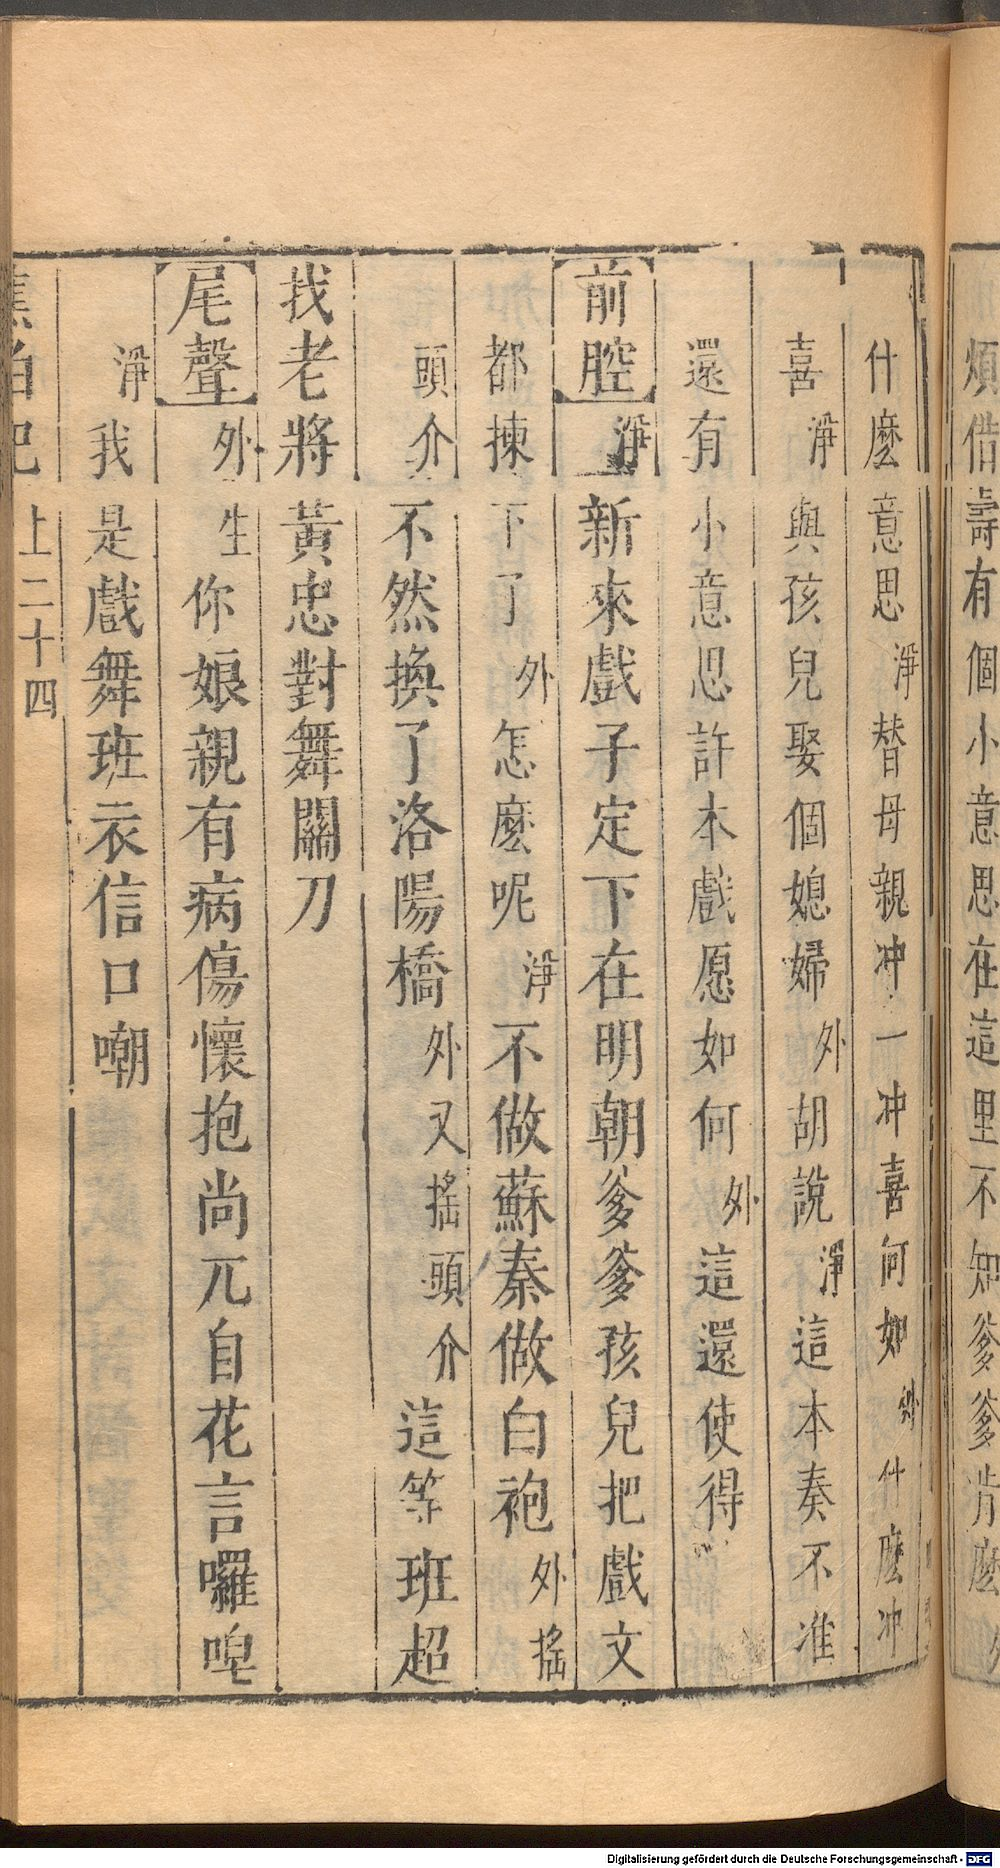 煩借壽有個小意思在這里不知爹爹肯麼
什麼意思淨替母親冲一冲喜何如外什麼冲
喜淨與孩兒娶個媳婦外胡說淨這本奏不准
還有小意思許本戲愿如何外這還使得
前腔淨新來戲子定下在明朝爹爹孩兒把戲文
都揀下了外怎麼呢淨不做蘇秦做白袍外搖
頭介不然換了洛陽橋外又搖頭介這等班超
找老將黃忠對舞關刀
尾聲外生你娘親有病傷懷抱尚兀自花言囉唣
淨我是戲舞班衣信口嘲
上二十四
Digitalisierung gefördert durch die Deutsche Forschungsgemeinschaft - DFG